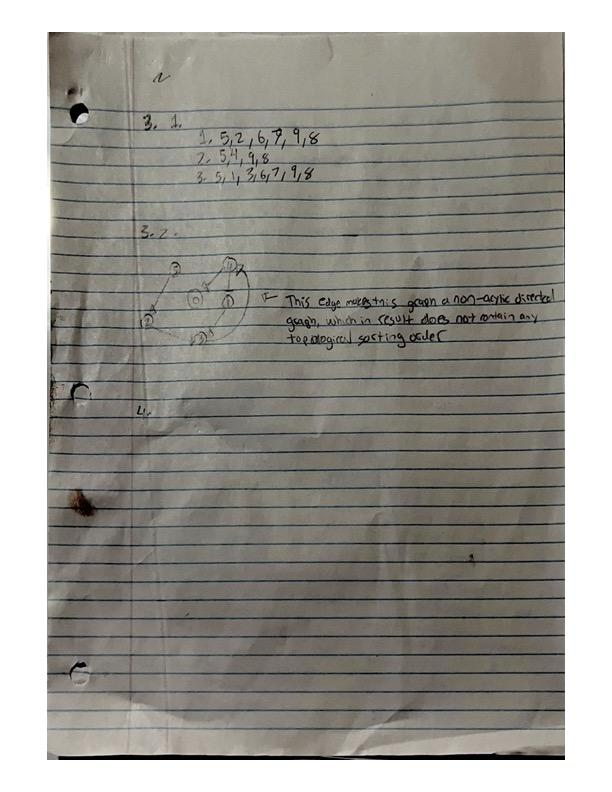 3. 1.
1. 5,2,6,7,9,8
2. 5,4,9,8
3. 5,1,3,6,7,9,8
3.2.
5 4
0 1
2
3
This edge makes this graph a non-acylic directed
graph, which in result does not contain any
topological sorting order
4.